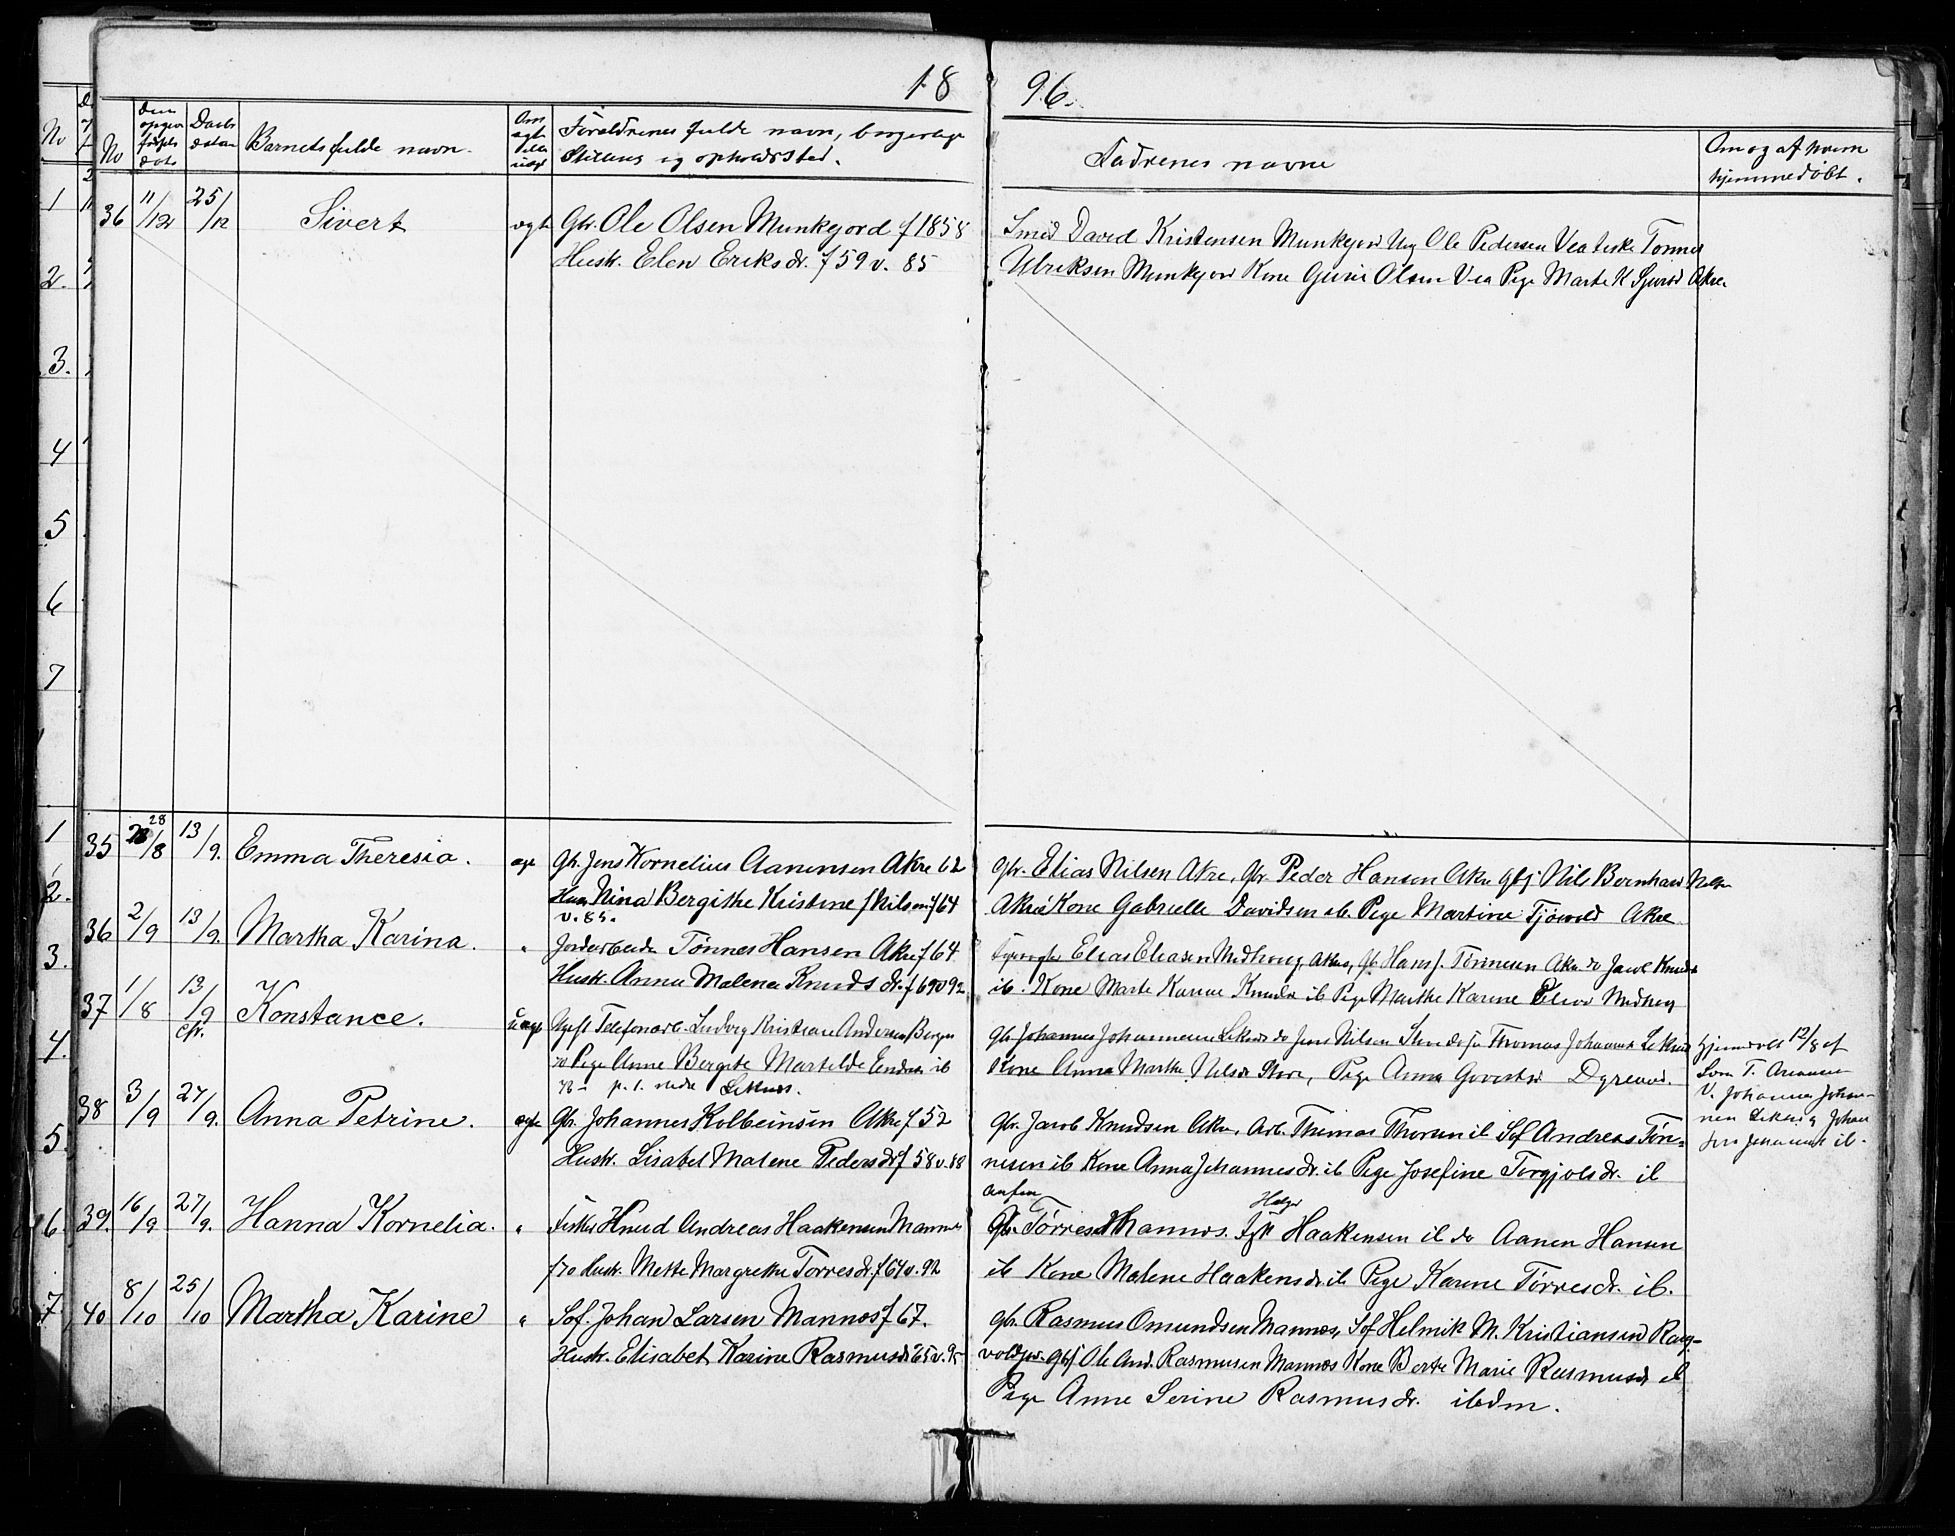 1896.
No
Den opgivne fødsels dato
Daabs datum
Barnets fulde navn.
Om ægte eller uægt
Forældrenes fulde navn, borgerlige
Stilling og opholdssted.
Fadrenes navne
Om og af hvem
hjemmedøbt.
36 11/12 25/12 Sivert ægt Gbr. Ole Olsen Munkejord f 1858
Hustr. Elen Eriksdr. f 59 v. 85
Smed David Kristensen Munkejord Ung Ole Pedersen Vea Tønnes
Ulriksen Munkejord Kone Olsen Vea Pige Marte K Sjursd Akre
35 28/8 13/9. Emma Theresia. ægt Gbr. Jens Kornelius Aanensen Akre 62
Nina Bergithe Kristine Nilsen f 64
v. 85.
Gbr. Elias Nilsen Akre, Gbr Peder Hansen Akre Gbf Nils Bernhard Nils
Akre Kone Gabrielle Davidsen ib. Pige Martine Akre
36 2/9 13/9. Martha Karina. " Jordarbeider Tønnes Hansen Akre f 64
Hustr. Anna Malena Knudsdr. f 69 v 92
Elias Eliasen Medhoug, Akre, Gb Hans J. Tønnesen Akre do Jacob Knuds
ib. Kone Marte Karine Knudsdr ib Pige Marthe Karine Medhoug
37 1/8 13/9 Konstance. uægt Ugift Telefonarb. Ludvig Kristian Andersen Bergen
70 Pige Anne Bergite Martilde ib
78 - p. 1. Leknes.
Gbr Johannes Johannesen do Jens Nilsen Store do Thomas Johannes
Kone Anna Marthe Nilsdr Store, Pige Anna Dyrland.
hjemdøbt 12/8 af
T.
V. Johannes Johan-
nesen og Johan
Johannes ib.
38 3/9 27/9. Anna Petrine. ægte Gbr. Johannes Kolbeinsen Akre f 52
Hustr. Lisabet Malene Pedersdr f 58 v. 88
Gbr. Jacob Knudsen Akre, Arb. Thomas ib Sof Andreas Tøn-
nesen ib Kone Anna Johannesdr. ib Pige Josefine Torgjolsdr. ib
39. 16/9 27/9. Hanna Kornelia. " Fisker Knud Andreas Haakensen Mannes
f 70 Hustr. Mette Margrethe Torresdr. f 64 v. 92
Gbr. Tørres Mannes. Helge Haakensen ib do Aanen Hansen
ib Kone Malene Haakensdr. ib Pige Karine Tørresdr. ib.
40 8/10 25/10 Martha Karine " Sof. Johan Larsen Mannes f 67.
Hustr. Elisabet Karine Rasmusdr 65 v. 95
Gbr. Rasmus Omundsen Mannes, Sof Helmik M. Kristiansen Rag-
voldjor. Gbf Ole And. Rasmussen Mannes Kone Berte Marie Rasmusdr ib
Pige Anne Serine Rasmusdr. ibdm.